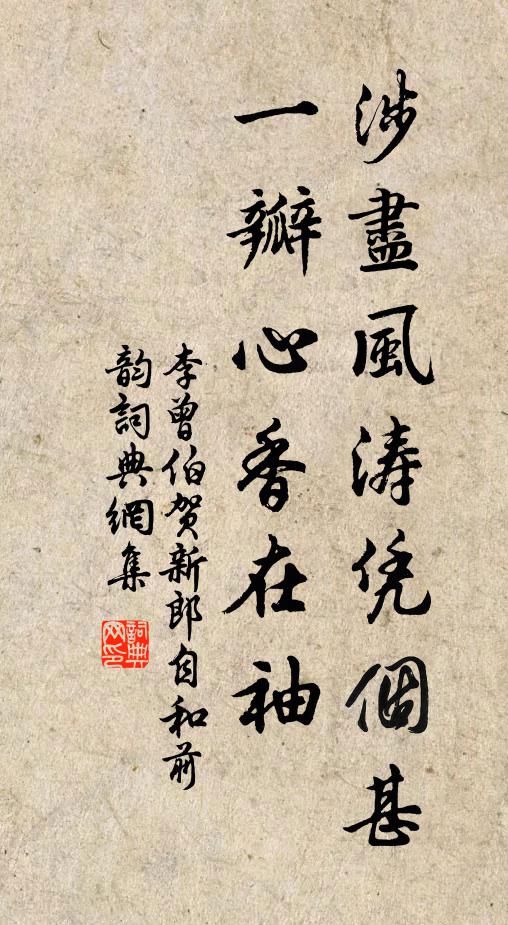 涉盡風涛凭個甚
一瓣心香在袖
李曾伯贺新郎自和前
韵詞典網集
詞典
网印